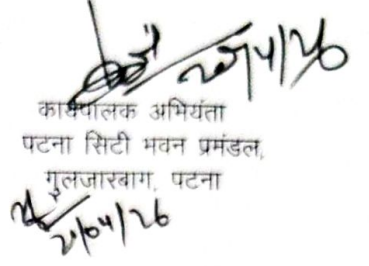 कार्यपालक अभियंता
पटना सिटी भवन प्रमंडल,
गुलजारबाग, पटना
21/04/26